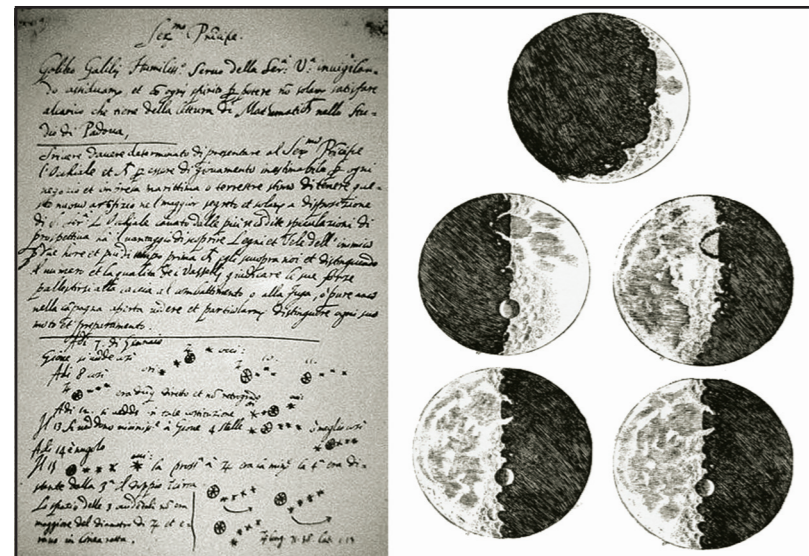 Ser.mo Principe.
Galileo Galilei Humiliss.o Servo della Ser.a V.a invigilan-
do assiduam.te et ogni spirito potere nō solam.te satisfare
alcarico che tiene della lettura di Matematica nello Stu-
dio di Padova,
Scrivere d'avere determinato di presentare al Ser.mo Principe
l'Occhiale et di essere di giovamento inestimabile ogni
negozio et impresa marittima o terrestre stimo di tenere que-
sto nuovo artifizio nel maggior segreto et solam.te a disposizione
di S. Ser.a L'Occhiale cavato dalle più recondite speculazioni di
prospettiva ha il vantaggio di scoprire Legni et Vele dell' inimico
due hore et più di tempo prima ch' egli scuopra noi et distinguendo
il numero et la qualità dei Vasselli giudicare le sue forze
pallestirsi alla caccia al combattimento o alla fuga, o pure anco
nella campagna aperta vedere et particolarm.te distinguere ogni suo
moto et preparamento.
Adi 7. di Gennaio
Giove si vedde così
Adi 8 così
era diretto et nō retrogrado
Adi 12. si vedde in tale costituzione
Il 13 si veddono vicinis.e a Giove 4 stelle meglio così
Adi 14 è nugolo
Il 15 la pross.a a la 4.a era di-
stante dalla 3.a il doppio
Lo spazio delle 3 occidentali nō era
maggiore del diametro di et e-
rano in linea retta.